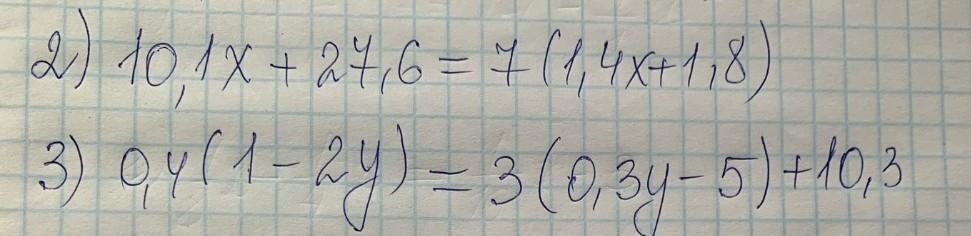 2) 10,1x + 27,6 = 7 (1,4x+1,8)
3) 0,4 (1 - 2y) = 3 (0,3y - 5) + 10,3